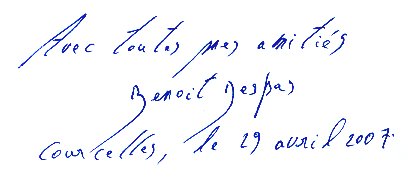 Avec toutes mes amitiés
Benoit Despas
Courcelles, le 29 avril 2007.